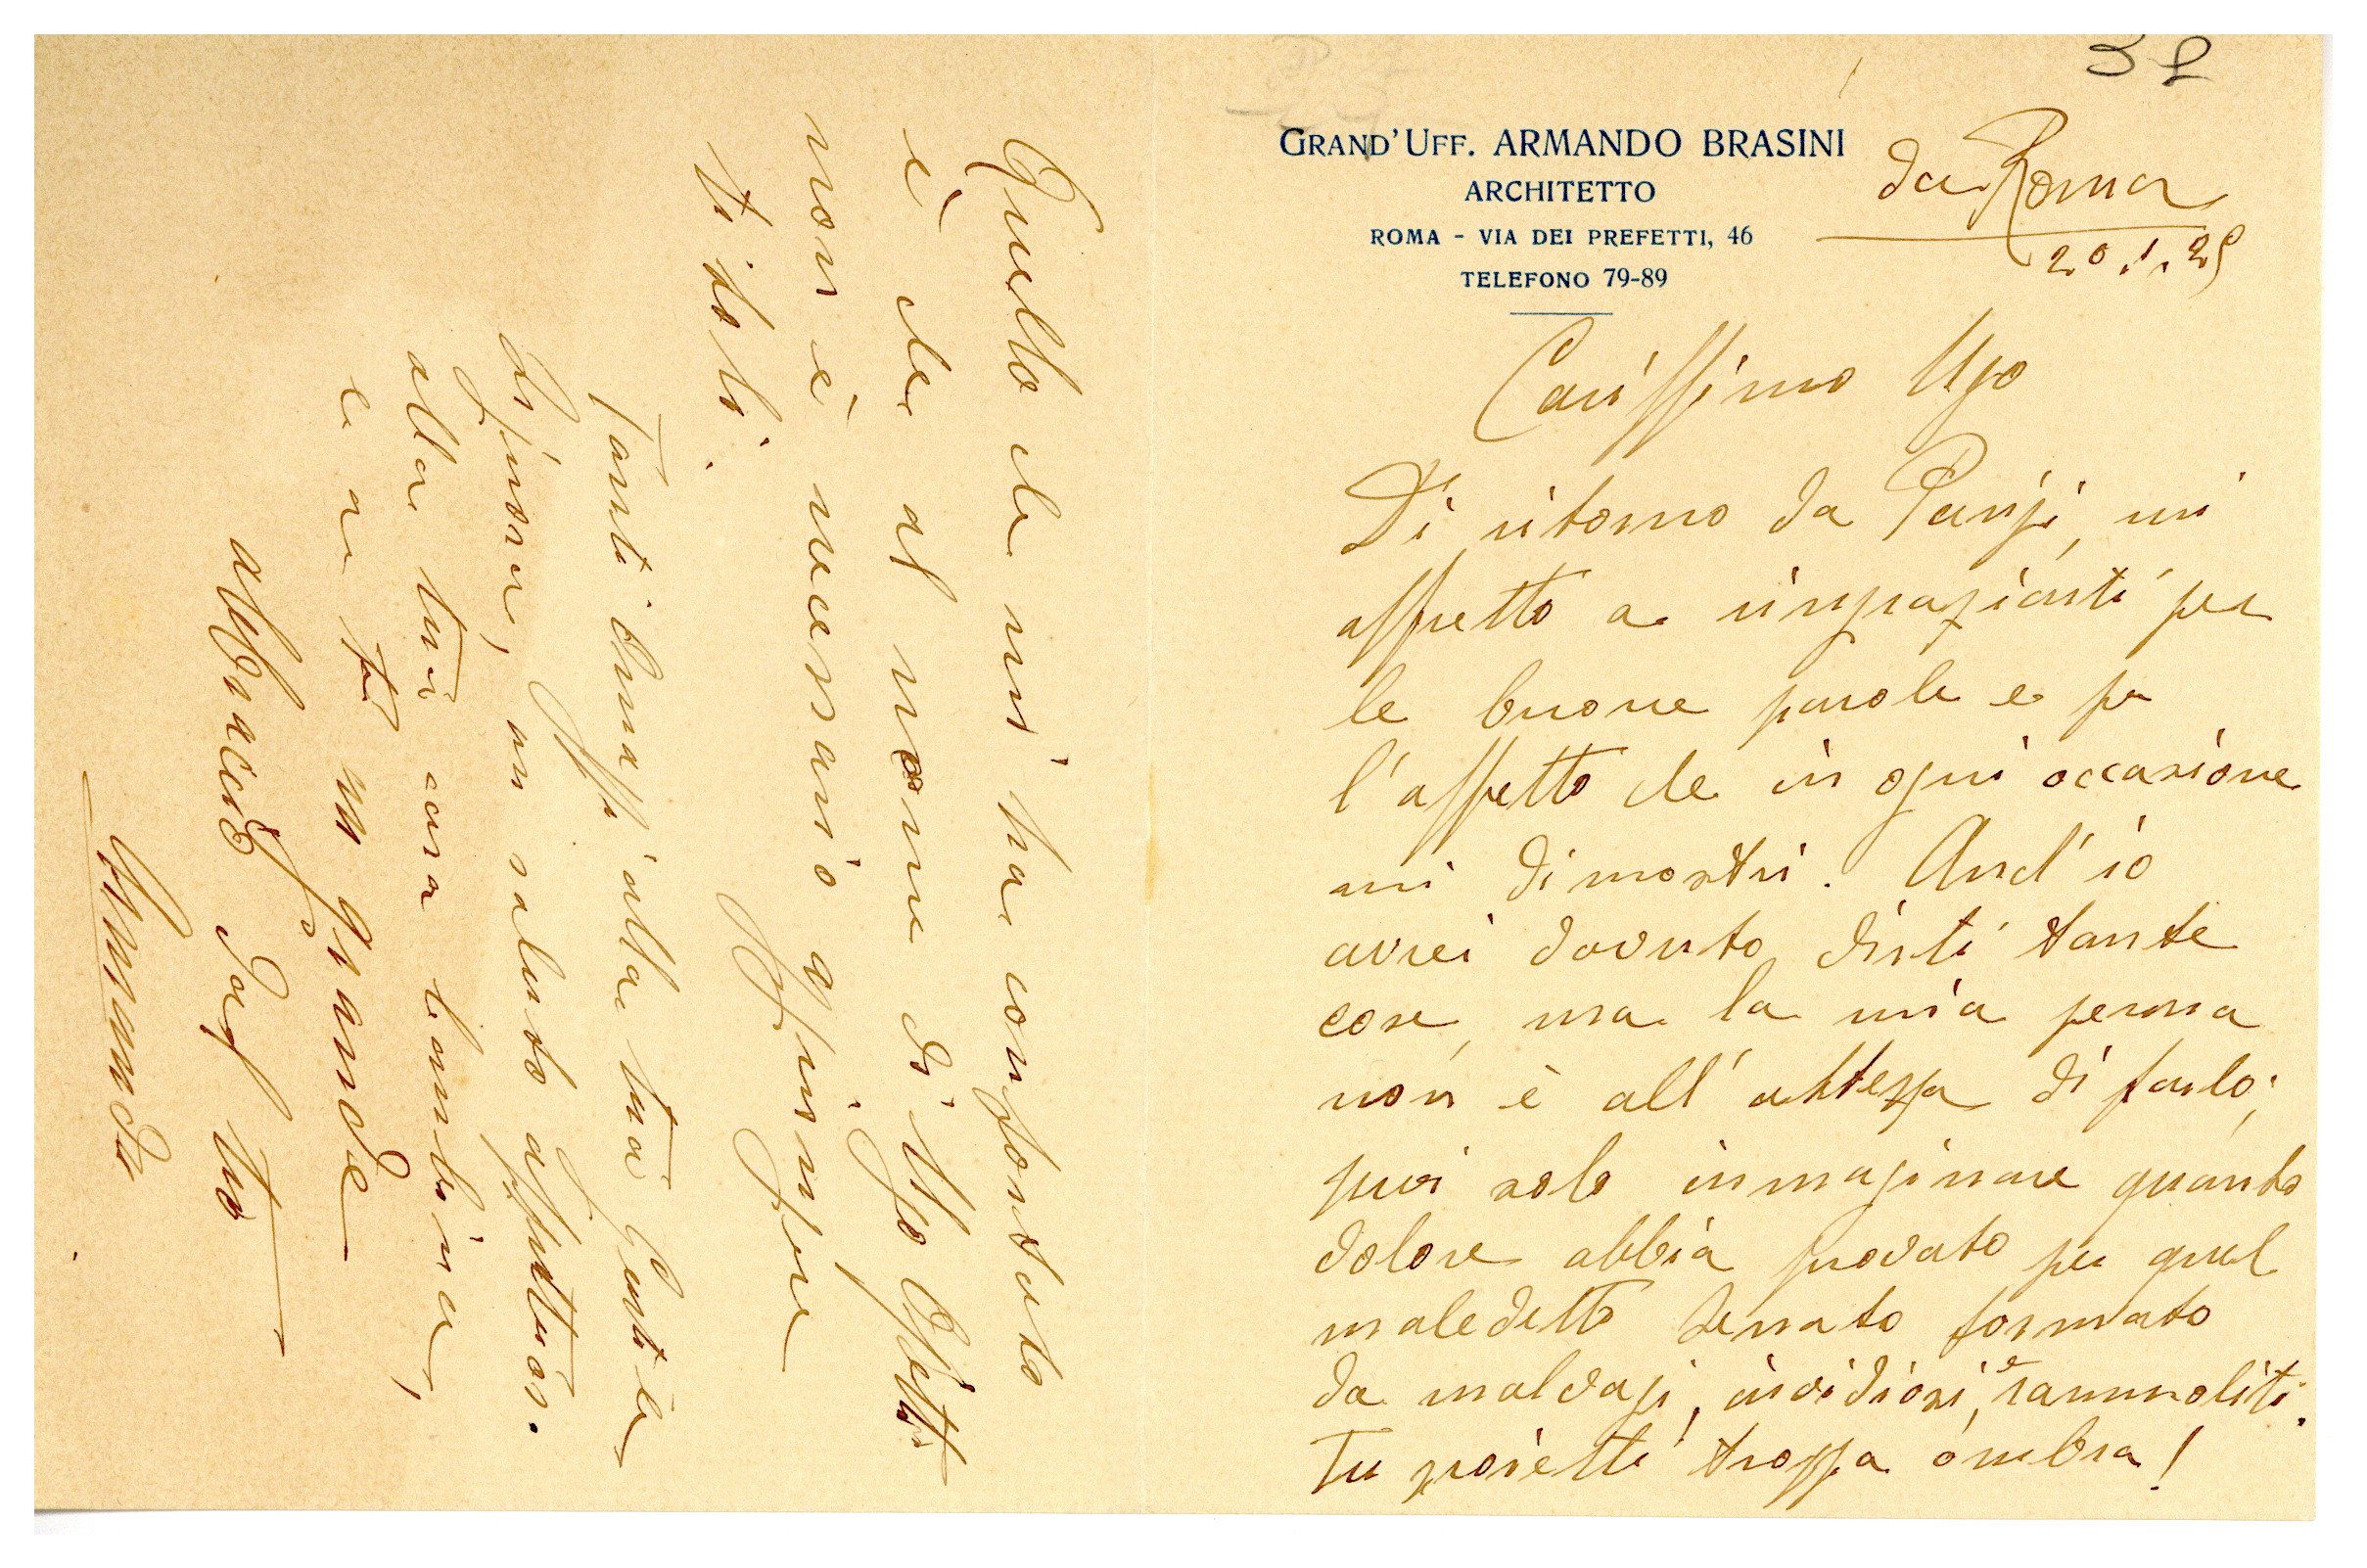 32
GRAND'UFF. ARMANDO BRASINI
ARCHITETTO
ROMA - VIA DEI PREFETTI, 46
TELEFONO 79-89
da Roma
20.1.29
Carissimo Ugo
Di ritorno da Parigi, mi
affretto a ringraziarti per
le buone parole e per
l'affetto che in ogni occasione
mi dimostri. Anch'io
avrei dovuto dirti tante
cose, ma la mia penna
non è all'altezza di farlo;
puoi solo immaginare quanto
dolore abbia provato per quel
maledetto Senato formato
da malvagi, invidiosi, e rammoliti.
Tu proietti troppa ombra!
Quello che mi ha confortato
è che al nome di Ugo Ojetti
non è necessario aggiungere
titoli.
Tanti omaggi alla tua gentile
Signora, un saluto affettuoso
alla tua cara bambina,
e a te un grande
abbraccio dal tuo
Armando